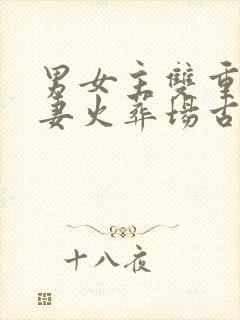 男女主雙重
妻火葬場古
十八夜